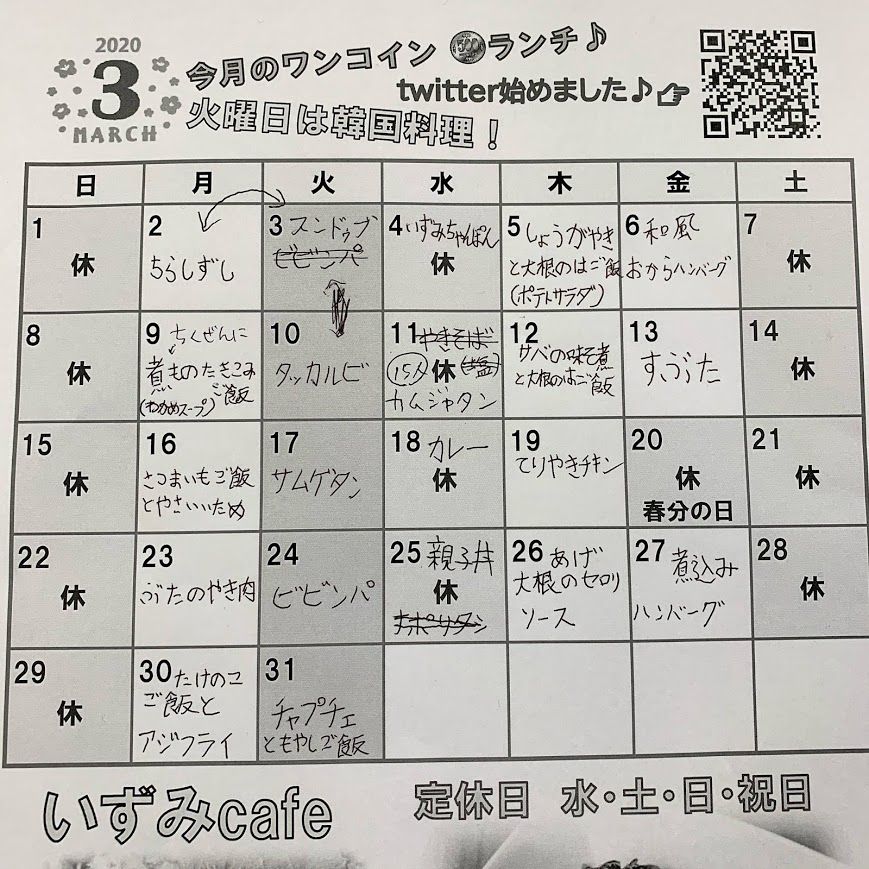 2020
3
MARCH
今月のワンコイン 500 ランチ♪
twitter始めました♪☞
火曜日は韓国料理！
日 月 火 水 木 金 土
1
休
2
ちらしずし
3 スンドゥブ
ビビンパ
4 いずみちゃんぽん
休
5 しょうがやき
と大根のはご飯
(ポテトサラダ)
6 和風
おからハンバーグ
7
休
8
休
9 ちくぜんに
煮ものたきこみ
ご飯
(わかめスープ)
10
タッカルビ
11 やきそば
15人 休 (塩)
カムジャタン
12
サバの味そ煮
と大根のはご飯
13
すぶた
14
休
15
休
16
さつまいもご飯
とやさいいため
17
サムゲタン
18 カレー
休
19
てりやきチキン
20
休
春分の日
21
休
22
休
23
ぶたのやき肉
24
ビビンパ
25 親子丼
休
ナポリタン
26 あげ
大根のセロリ
ソース
27 煮込み
ハンバーグ
28
休
29
休
30 たけのこ
ご飯と
アジフライ
31
チャプチェ
ともやしご飯
いずみcafe
定休日 水・土・日・祝日